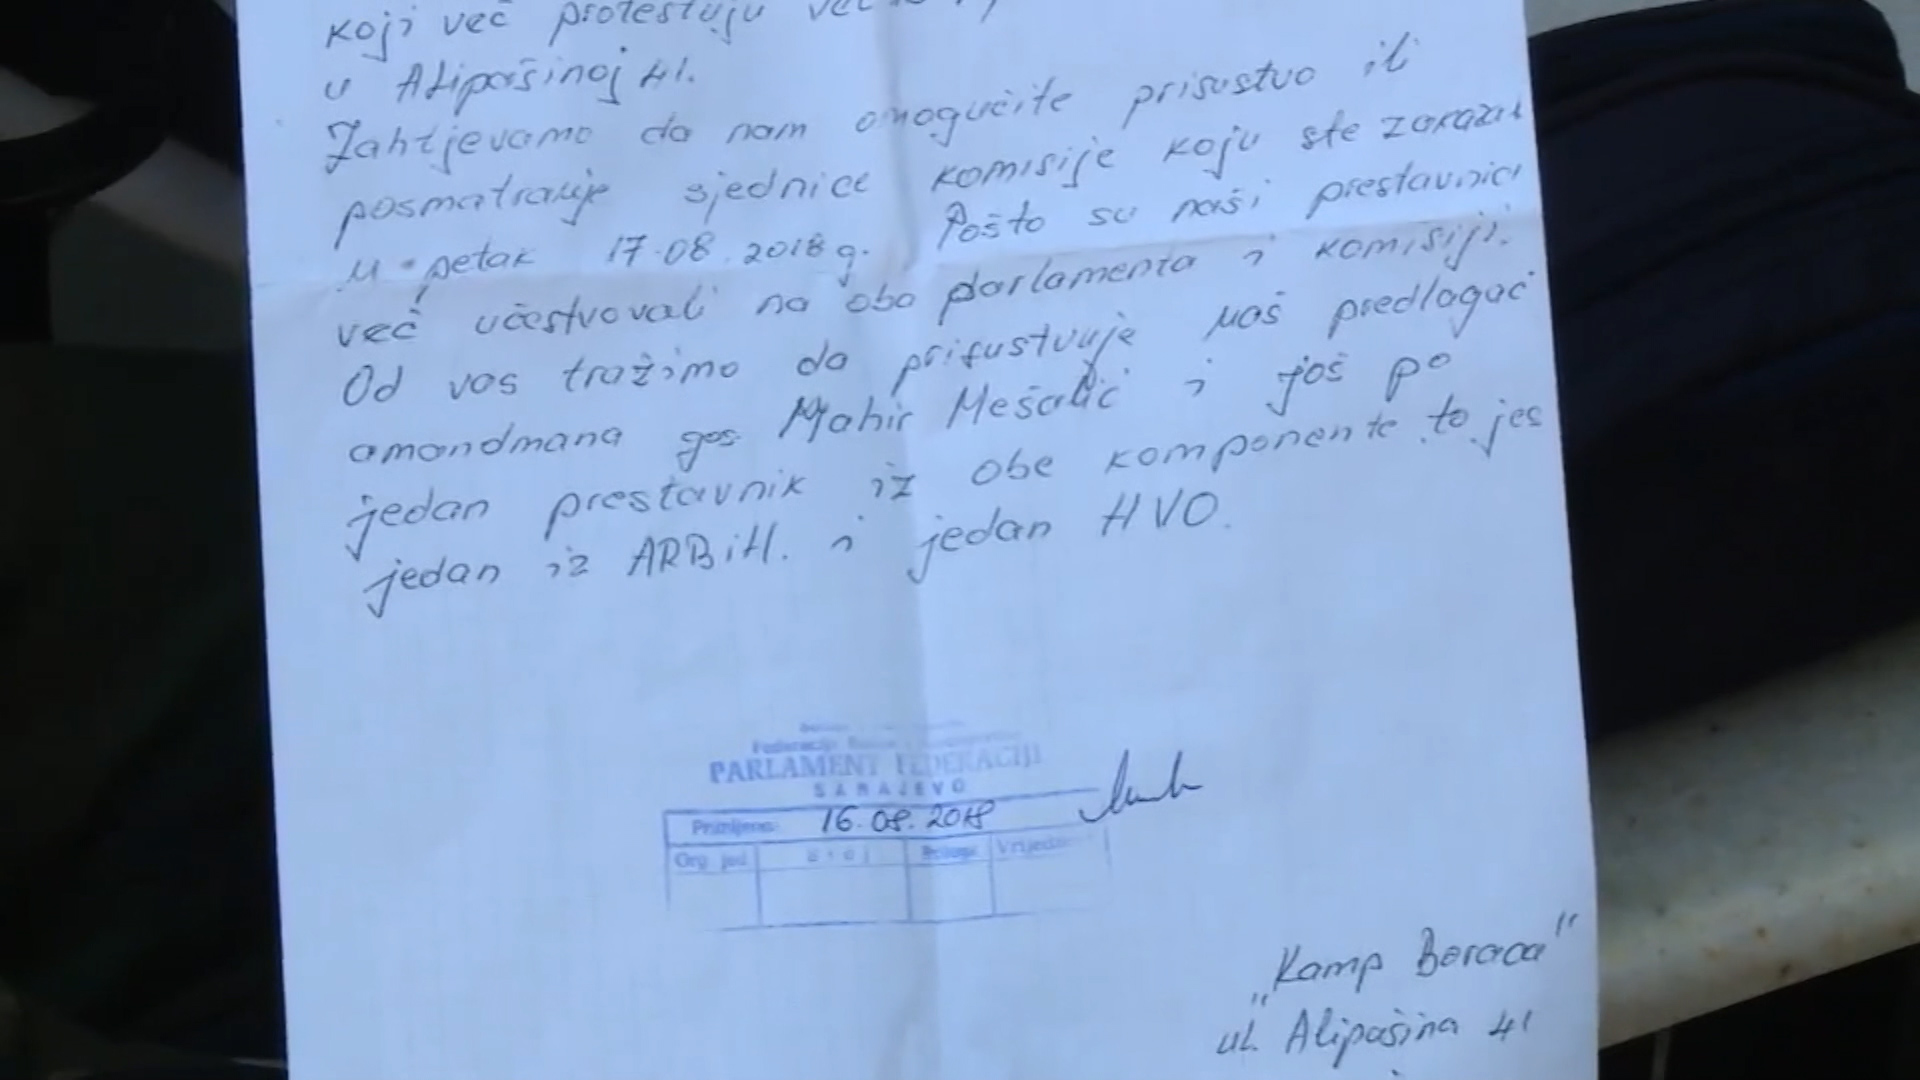 koji več protestuju
u Alipašinoj 41.
Zahtjevamo da nam omogučite prisustvo ili
posmatranje sjednice komisije koju ste zakazali
u petak 17.08.2018g. Pošto su naši prestavnici
več učestvovali na oba parlamenta i komisiji.
Od vas tražimo da prisustvuje naš predlagač
amandmana gos. Mahir Mešalić i još po
jedan prestavnik iz obe komponente to jes
jedan iz ARBiH. i jedan HVO.
PARLAMENT FEDERACIJE
SARAJEVO
Primljeno: 16.08.2018
Org. jed. Broj Prilog Vrijedn
"Kamp Boraca"
ul. Alipašina 41